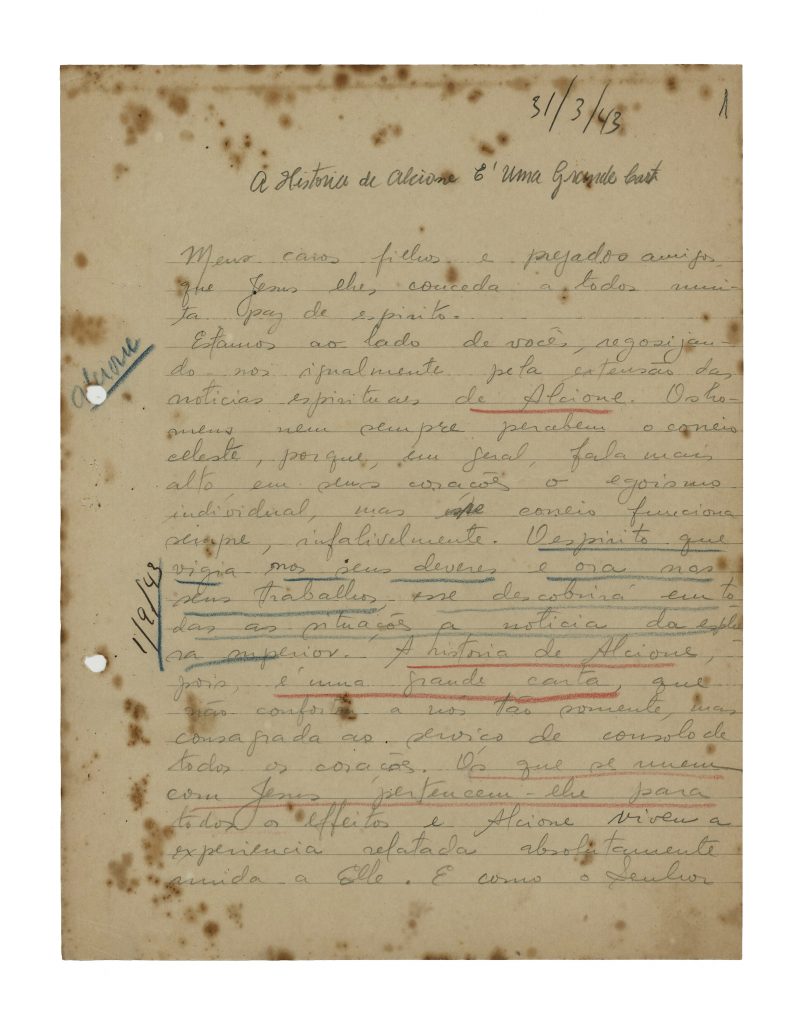 31/3/43
1
A Historia de Alcione É Uma Grande Cart
Meus caros filhos e prezados amigos,
que Jesus lhes conceda a todos mui-
ta paz de espirito.
Estamos ao lado de vocês, regosijan-
do nos igualmente pela extensão das
Alcione
noticias espirituaes de Alcione. Os ho-
mens nem sempre percebem o correio
celeste, porque, em geral, fala mais
alto em seus corações o egoismo
individual, mas esse correio funciona
sempre, infalivelmente. O espirito que
vigia nos seus deveres e ora nos
1/9/43
seus trabalhos, esse descobrirá em to-
das as situações a noticia da esphe-
ra superior. A historia de Alcione,
pois, é uma grande carta, que
não conforta a nós tão somente, mas
consagrada ao serviço de consolo de
todos os corações. Os que se unem
com Jesus pertencem-lhe para
todos os effeitos e Alcione viveu a
experiencia relatada absolutamente
unida a Elle. E como o Senhor